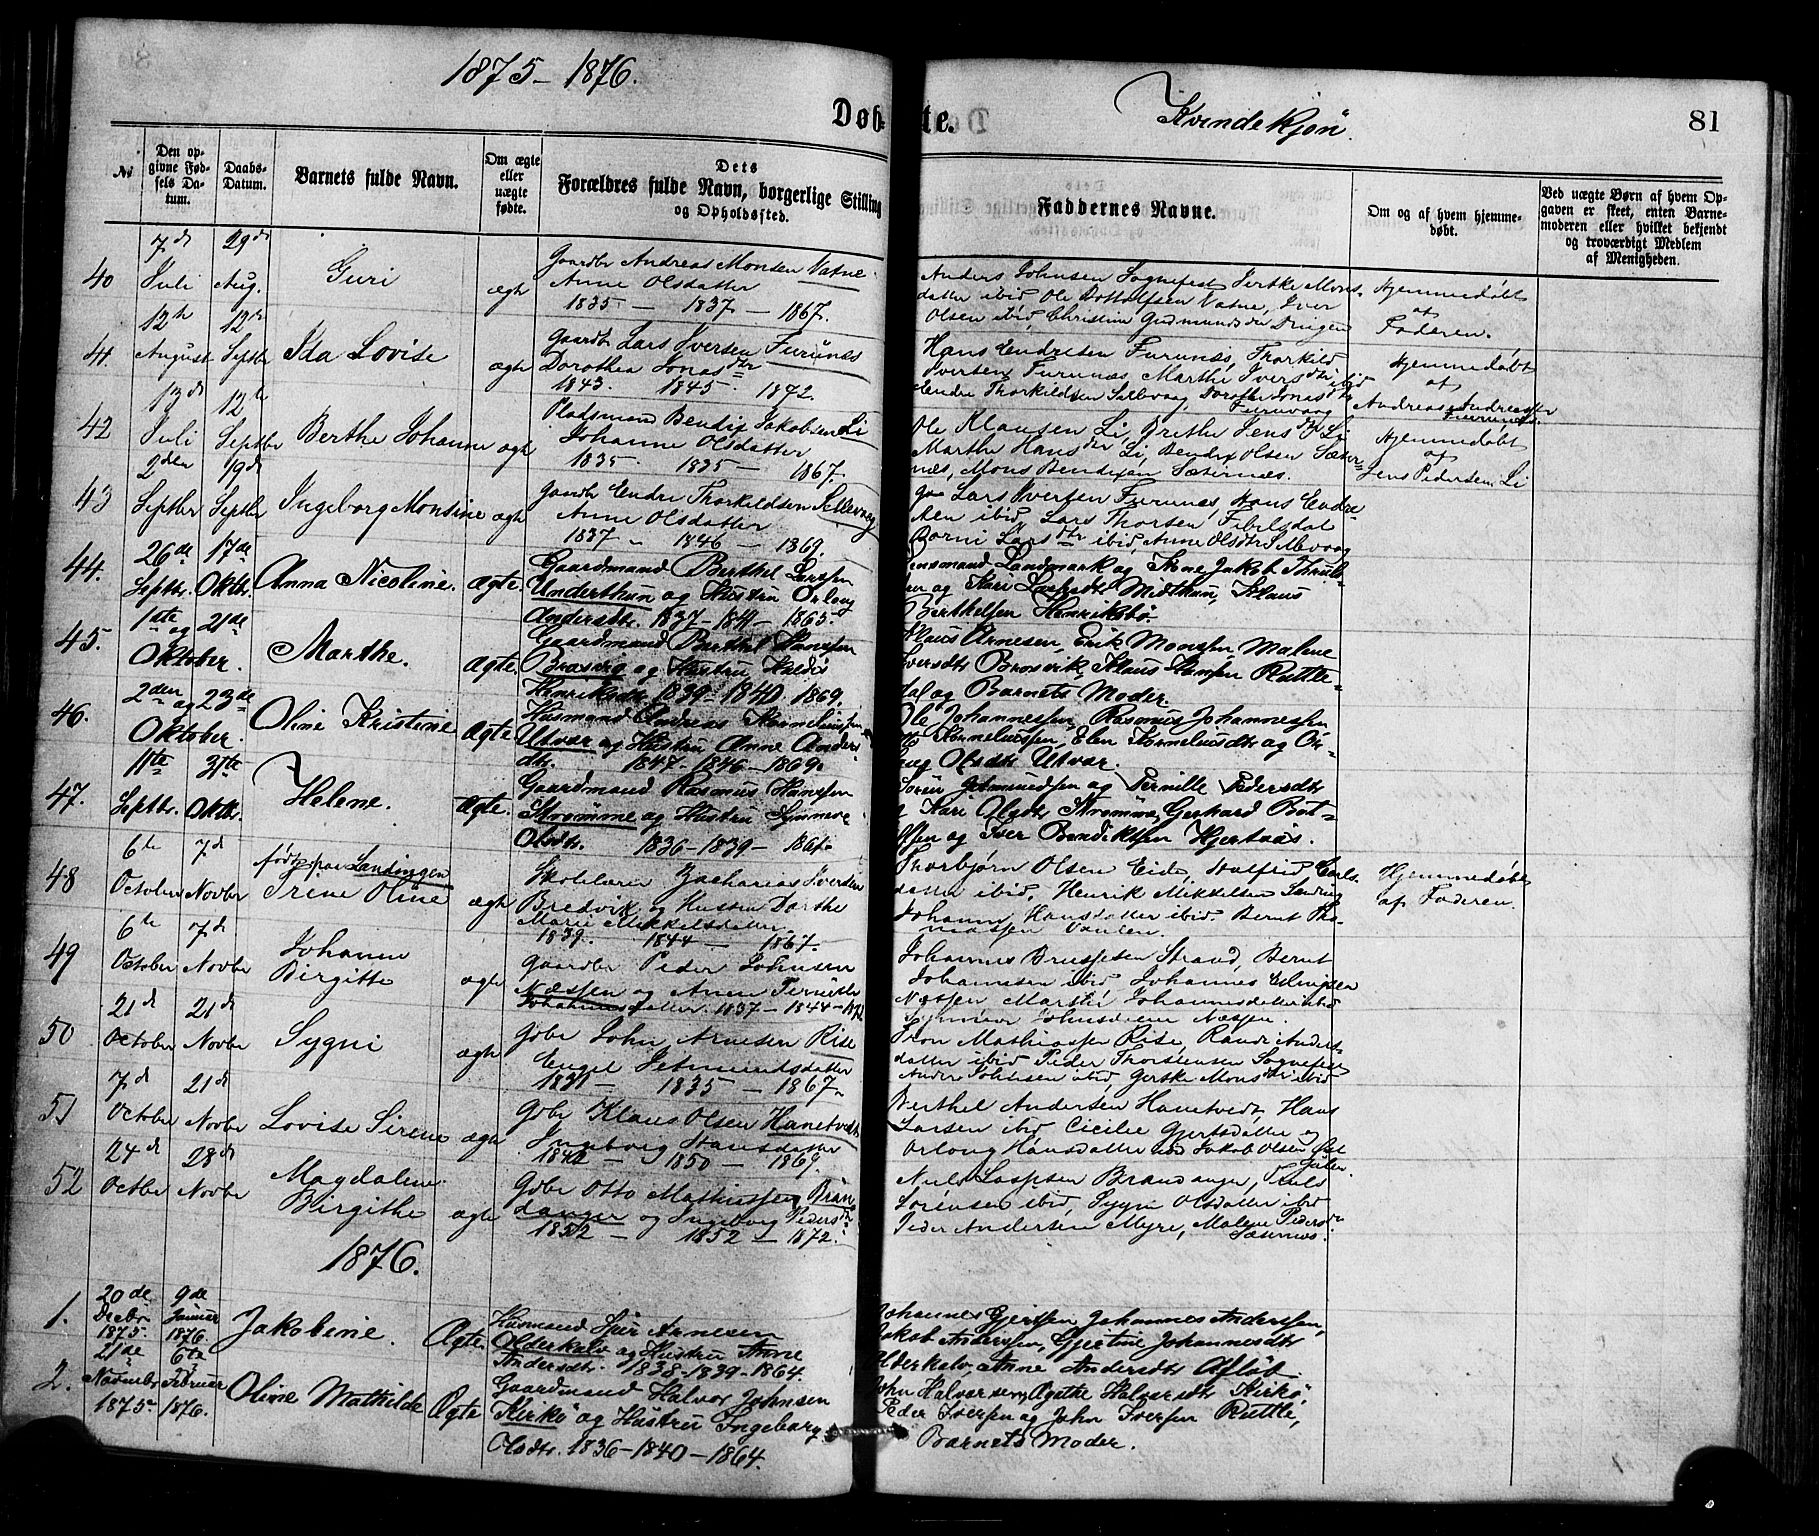 1875 - 1876.
Døbte.
Kvindekjøn
81
No
Den opgivne Fødsels Datum.
Daabs-Datum.
Barnets fulde Navn.
Om ægte eller uægte fødte.
Dets Forældres fulde Navn, borgerlige Stilling og Opholdssted.
Faddernes Navne.
Om og af hvem hjemmedøbt.
Ved uægte Børn af hvem Opgaven er skeet, enten Barnemoderen eller hvilket bekjendt og troværdigt Medlem af Menigheden.
40
7de Juli
29de Aug.
Guri
ægte
Gaardbr Andreas Monsen Vatne
Anne Olsdatter
1835 - 1837 - 1867.
Anders Johnsen Sognefest Gertke Mons-
datter ibid Ole Vatne, Iver
Olsen ibid, Christine Gudmundsdr Dingen
Hjemmedøbt
af
Faderen.
41
12te August
12te Septbr
Ida Lovise
ægte
Gaardb Lars Iversen Furunes
Dorothea Jonasdtr
1843. 1845. 1872.
Hans Endresen Furunæs, Thorkild
Iversen Furunæs, Marthe Iversdtr ibid
Endre Thorkildsen Sellevaag, Dorothe Jonasdtr
Furuvaag
Hjemmedøbt
af
Andreas Andreassen
Furunes.
42
13de Juli
12te Septbr
Berthe Johanne
ægte
Pladsmand Bendix Jakobsen Li
Johanne Olsdatter
1835. 1835 - 1867.
Ole Klausen Li, Brithe Jensdtr Li
Marthe Hansdtr Li, Bendix Olsen Sæter-
næs, Mons Bendixen Sæternæs.
Hjemmedøbt
af
Jens Pedersen Li
43
2den Septbr
19de Septbr
Ingeborg Monsine
ægte
Gaardb Endre Thorkildsen Sellevaag
Anne Olsdatter
1837 - 1846 - 1869.
Lars Iversen Furunæs, Hans Endre-
sen ibid, Lars Thorsen
Borni Larsdtr ibid, Anne Olsdtr Sellevaag
44.
26de Septbr.
17de Oktbr.
Anna Nicoline.
Ægte.
Gaardmand Berthel Larssen
Underthun og Hustru Orloug
Andersdtr. 1837 - 1841 - 1865.
Landmark og Arne Jakob
og Kari Midthun, Klaus
Berthelsen Henriksbø.
45.
1ste Oktober.
21de og
Marthe.
Ægte.
Gaardmand Berthel Hanssen
Brosvig og Hustru Huldis
Henriksdtr 1839 - 1840, 1869.
Klaus Arnesen, Erik Monssen, Malene
Iversdtr Brosvik, Klaus Hansen Ruttle-
dal og Barnets Moder.
46.
2den og 23de
Oktober.
Oline Kristine
Ægte
Husmand Andreas Kornelius
Utvær og Hustru Anne Anders
dtr. 1847 - 1846 - 1869.
Ole Johannessen, Rasmus Johannessen
Korneliussen, Elen Korneliusdtr og Or-
loug Olsdtr Utvær.
47.
11te Septbr.
31te Oktbr.
Helene.
Ægte.
Gaardmand Rasmus Hanssen
Strømme og Hustru Synneve
Olsdtr. 1836 - 1839 -
Søren og Pernille Pedersdtr
Kari Olsdtr Strømme, Gerhard Bot-
og Iver Bendiktsen Hjertnæs.
48
6te October
7de Novbr
født paa Landingen
Irene Oline
ægte
Skolelærer Zacharias Iversen
Bredvik og Hustru Dorthe
Marie Mikkelsdatter.
1839. 1844 - 1867.
Thorbjørn Olsen Eide,
datter ibid, Henrik Mikkelsen
Johanne Hansdatter ibid Bernt Tho-
massen
Hjemmedøbt
af Faderen.
49
6te October
7de Novbr
Johanne
Birgitte
ægte
Gaardbr Peder Johnsen
Næssen og Anne Pernille
Johannesdatter. 1837 - 1844 - 1872
Johannes Strand, Bernt
ibid, Johannes Ellingsen
Næssen Marthe Johannesdatter ibid
Synneve Johnsdatter Næssen.
50
21de October
21de Novbr
Sygni
ægte
Gbr John Arnesen Rise
Engel Jetmundsdatter
1831 - 1835 - 1867.
Mathiassen Rise, Randi Anders-
datter ibid Peder Thorstensen Sognefest
Anders Johnsen ibid, Gertke Monsdtr ibid
51
7de October
21de Novbr
Lovise Sirene
ægte
Gbr Klaus Olsen Hanetvedt
Ingeborg Hansdatter
1842 - 1850 - 1869.
Berthel Andersen Hanetvedt, Hans
Larsen ibid Cicilie Gjertsdatter og
Orloug Hansdatter ibid Jakob Olsen
52
24de Octbr
28de Novbr
Magdalene
Birgithe
ægte
Gbr Otto Mathiassen Bran
danger og Ingeborg Pedersdtr
1852 - 1852 - 1872.
Nils Brandanger,
Sørensen ibid, Sygni Olsdatter ibid
Peder Andersen Myre, Malene Pedersdtr
Sæternes.
1876.
1.
20de Decbr 1875.
9de Januar 1876.
Jakobine.
Ægte
Husmand Iver Arnesen
Olderkalv og Hustru Anne
Andersdtr. 1838 - 1839 - 1864.
Johannes Gjertsen, Johannes Anderssen,
Jakob Anderssen, Gjertine Johannesdtr
Olderkalv, Anne Andersdtr Afløb.
2.
21de November 1875.
6te Februar 1876.
Oline Mathilde
Ægte
Gaardmand Halvor Johnsen
Kirkø og Hustru Ingeborg
Olsdtr. 1836 - 1840 - 1864.
John Halvorsen, Agethe Halvorsdtr Kirkø
Peder Iversen og John Iversen Ruttle,
Barnets Moder.